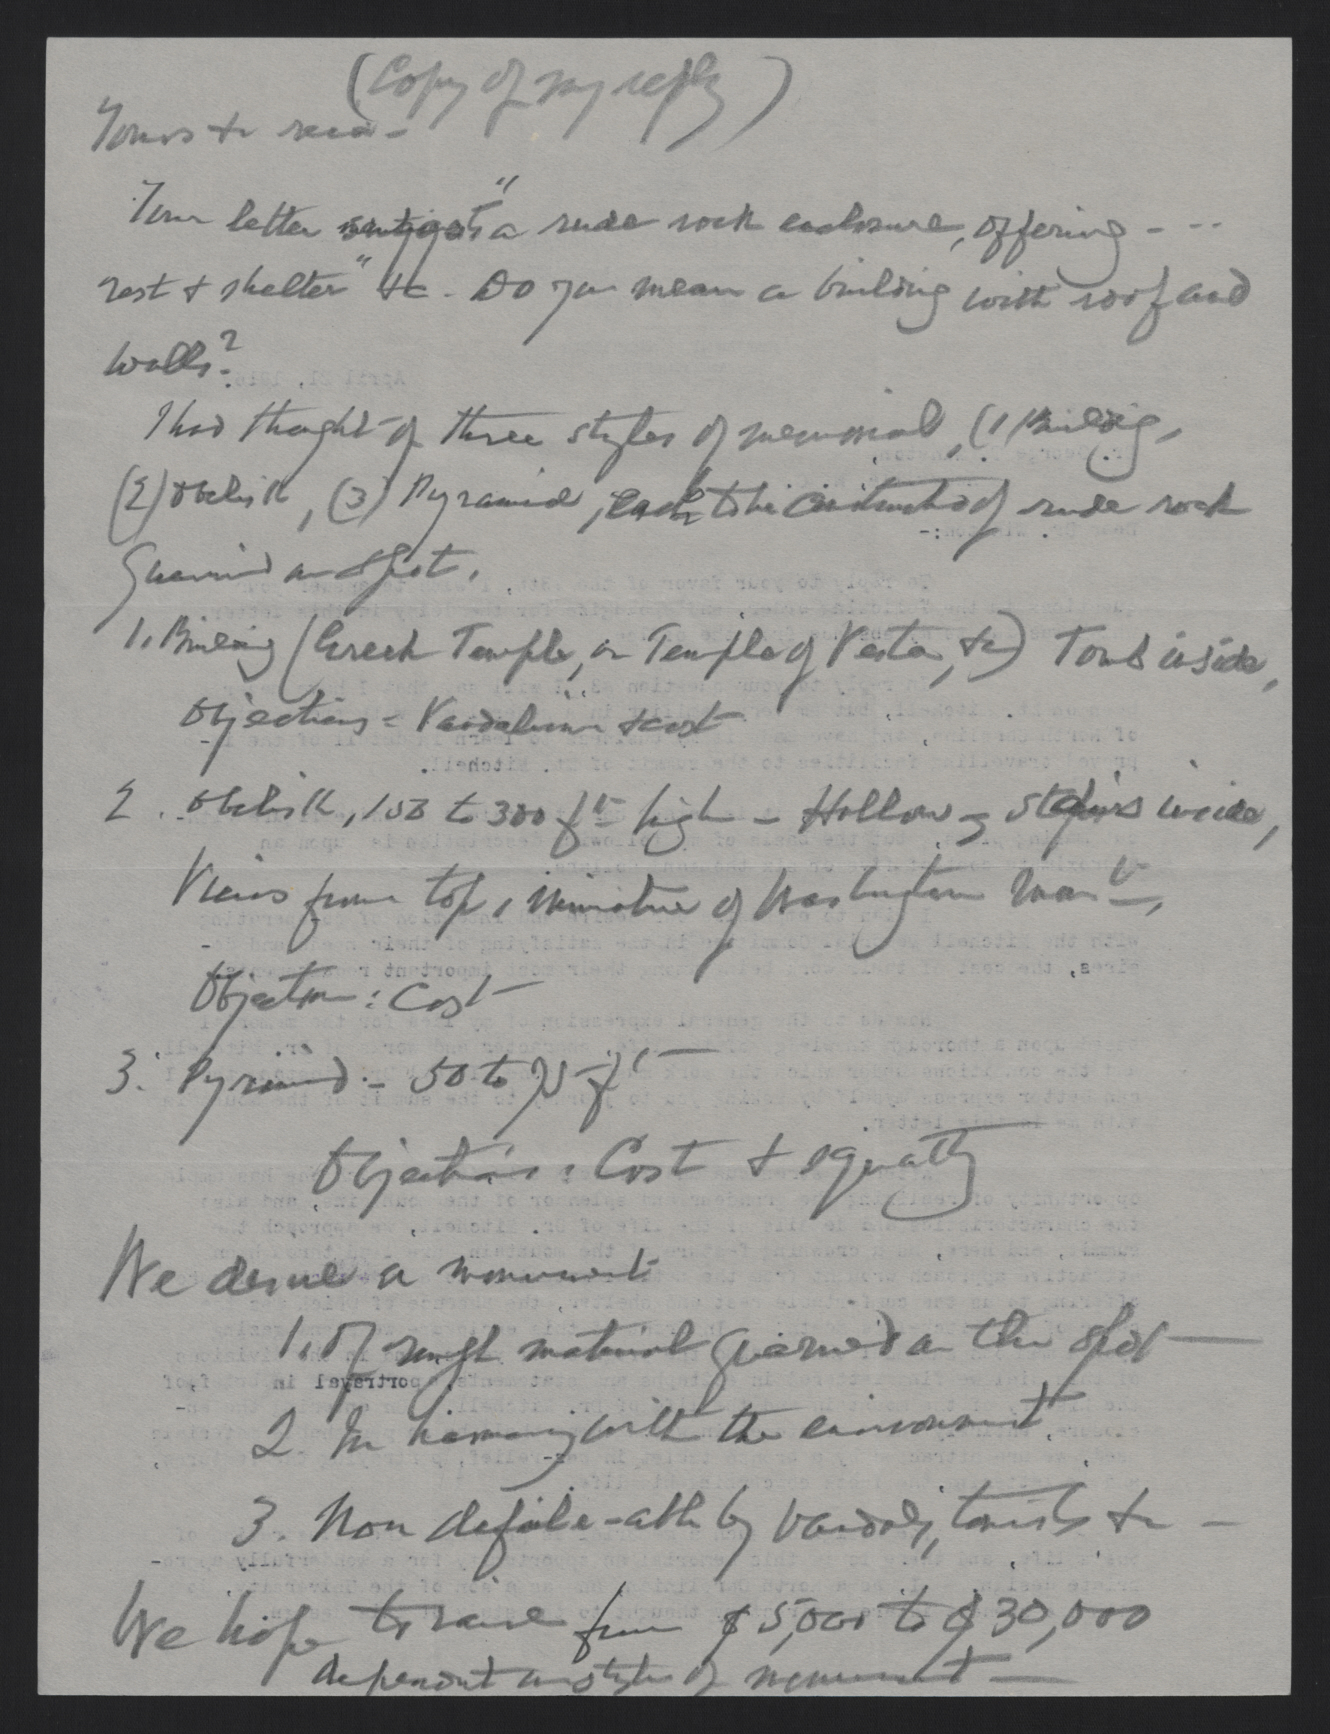 (Copy of my reply)
Yours &c recd -
Your letter suggests "a rude rock enclosure, offering - - -
rest & shelter" &c. Do you mean a building with roof and
walls?
I had thought of three styles of memorial, (1) Building,
(2) Obelisk, (3) Pyramid, each to be constructed of rude rock
Quarried on spot.
1. Building (Greek Temple, or Temple of Vesta, &c) Tomb inside,
Objections - Vandalism & cost
2. Obelisk, 150 to 300 ft high - Hollow, stairs inside,
Views from top, miniature of Washington Mont,
Objection: Cost
3. Pyramid - 50 to 75 ft
Objections: Cost & squatty
We desire a monument
1. Of rough material quarried on the spot
2. In harmony with the environment
3. Non deface-able by vandals, tourists &c -
We hope to raise from $5,000 to $30,000
dependent on style of monument -